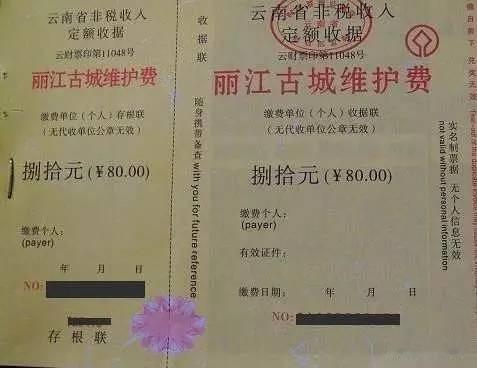 云南省非税收入
定额收据
云财票印第11048号
丽江古城维护费
缴费单位（个人）存根联
（无代收单位公章无效）
捌拾元(￥80.00)
缴费个人：
(payer)
年 月 日
NO:
存根联
收据联
随身携带备查 with you for future reference
云南省非税收入
定额收据
云财票印第11048号
丽江古城维护费
缴费单位（个人）收据联
（无代收单位公章无效）
捌拾元(￥80.00)
缴费个人：
(payer)
有效证件：
缴费日期： 年 月 日
NO:
实名制票据 无个人信息无效
not valid without personal information